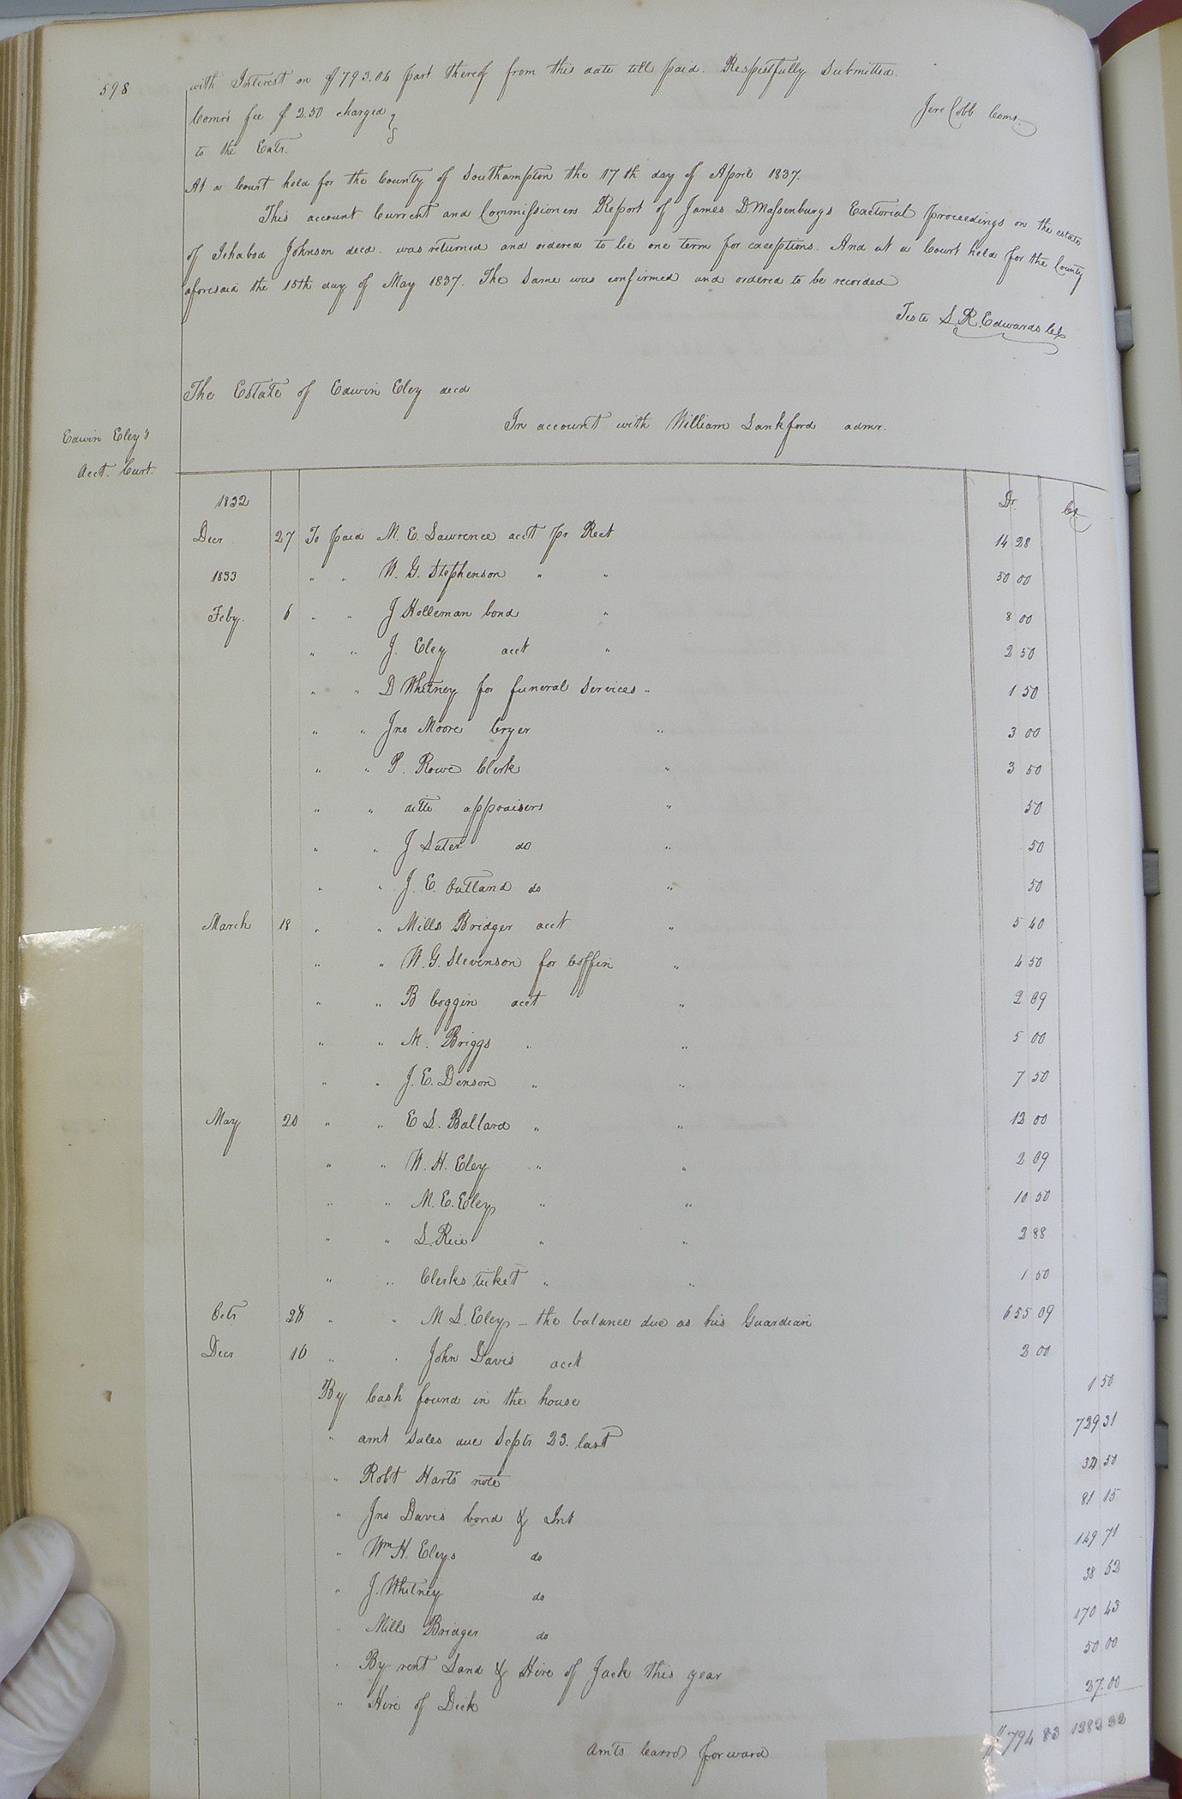 598
with Interest on $793.04 part thereof from this date till paid. Respectfully Submitted.
Comrs fee $ 2.50 charged
Jere Cobb Coms.
to the Extr.
At a Court held for the County of Southampton the 17th day of April 1837.
This account Current and Commissioners Report of James D. Massenburgs Exectorial proceedings on the estate
of Ichabod Johnson decd. was returned and ordered to lie one term for exceptions. And at a Court held for the County
aforesaid the 15th day of May 1837. The Same was confirmed and ordered to be recorded
Teste L. R. Edwards Clk
The Estate of Edwin Eley decd
In account with William Lankford admr.
Edwin Eley's
Acct. Curt.
1832 Dr. Cr
Decr 27 To paid M. E. Lawrence acct pr Rect 14 28
1833 " " W. G. Stephenson " " 50 00
Feby. 6 " " J Holleman bond " 8 00
" " J. Eley acct " 2 50
" " D Whitney for funeral Services " 1 50
" " Jno Moore Cryer " 3 00
" " P. Rowe Clerk " 3 50
" " ditto appraisers " 50
" " J Sater do " 50
" " J. E. Outland do " 50
March 18 " " Mills Bridger acct " 5 40
" " W. G. Stevenson for Coffin " 4 50
" " B Coggin acct " 2 09
" " M. Briggs " " 5 00
" " J. E. Denson " " 7 50
May 20 " " E S. Ballard " " 12 00
" " W. H. Eley " " 2 09
" " M. E. Eley " " 10 50
" " S. Rice " " 2 88
" " Clerks ticket " " 1 50
Octr 28 " " M S. Eley - the balance due as his Guardian 655 09
Decr 10 " " John Davis acct 2 00
By Cash found in the house 1 50
" amt Sales due Septr 23. last 729 31
" Robt Harts note 50
" Jno Davis bond & Int 81 15
" Wm H. Eleys do 149 71
" J. Whitney do 38 52
" Mills Bridger do 170 43
" By rent Land & Hire of Jack this year 50 00
" Hire of Dick 27.00
Amts Carrd forward $794 83 1282 22